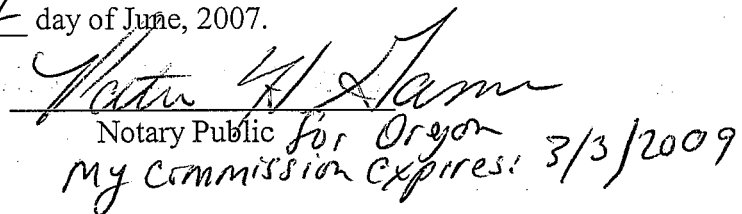 day of June, 2007.
Notary Public for Oregon
My Commission Expires: 3/3/2009